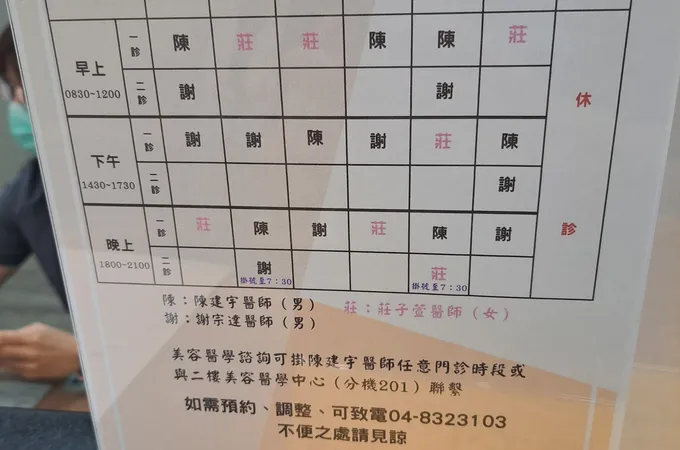 一診 陳 莊 莊 陳 陳 莊
早上
0830-1200
二診 謝 謝
休診
一診 謝 謝 陳 謝 莊 陳
下午
1430-1730
二診 謝
一診 莊 陳 謝 莊 陳 謝
晚上
1800-2100
二診 謝 莊
掛號至7:30 掛號至7:30
陳:陳建宇醫師(男) 莊:莊子萱醫師(女)
謝:謝宗達醫師(男)
美容醫學諮詢可掛陳建宇醫師任意門診時段或
與二樓美容醫學中心(分機201)聯繫
如需預約、調整、可致電04-8323103
不便之處請見諒